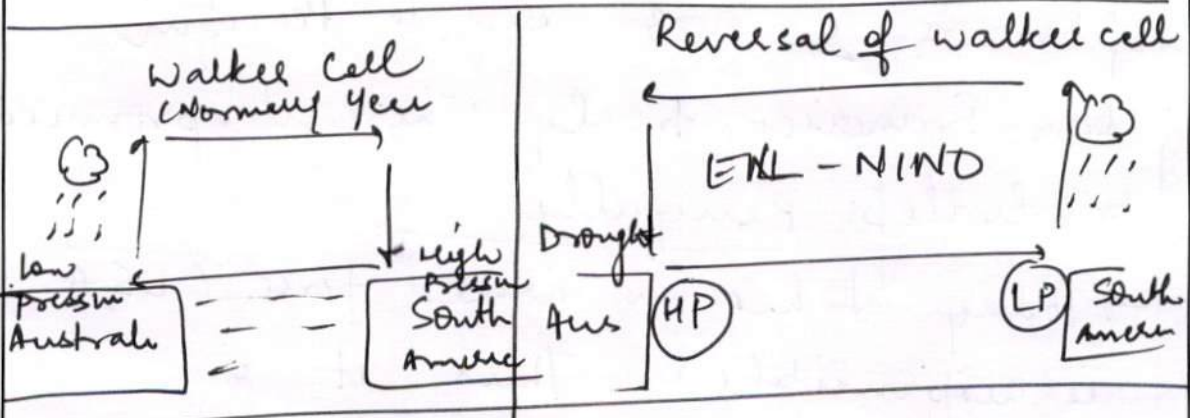 Walker Cell
(Normaly Year
Low
Pressure
Australi
High
Pressure
South
America
Reversal of walker cell
EL - NINO
Drought
Aus
HP
LP
South
America